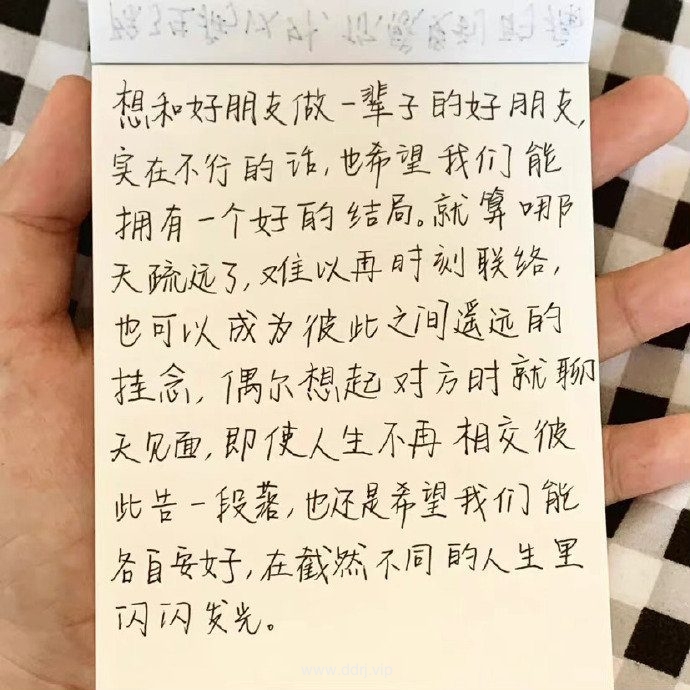 想和好朋友做一辈子的好朋友,
实在不行的话,也希望我们能
拥有一个好的结局。就算哪
天疏远了,难以再时刻联络,
也可以成为彼此之间遥远的
挂念,偶尔想起对方时就聊
天见面,即使人生不再相交彼
此告一段落,也还是希望我们能
各自安好,在截然不同的人生里
闪闪发光。
www.ddn.vip